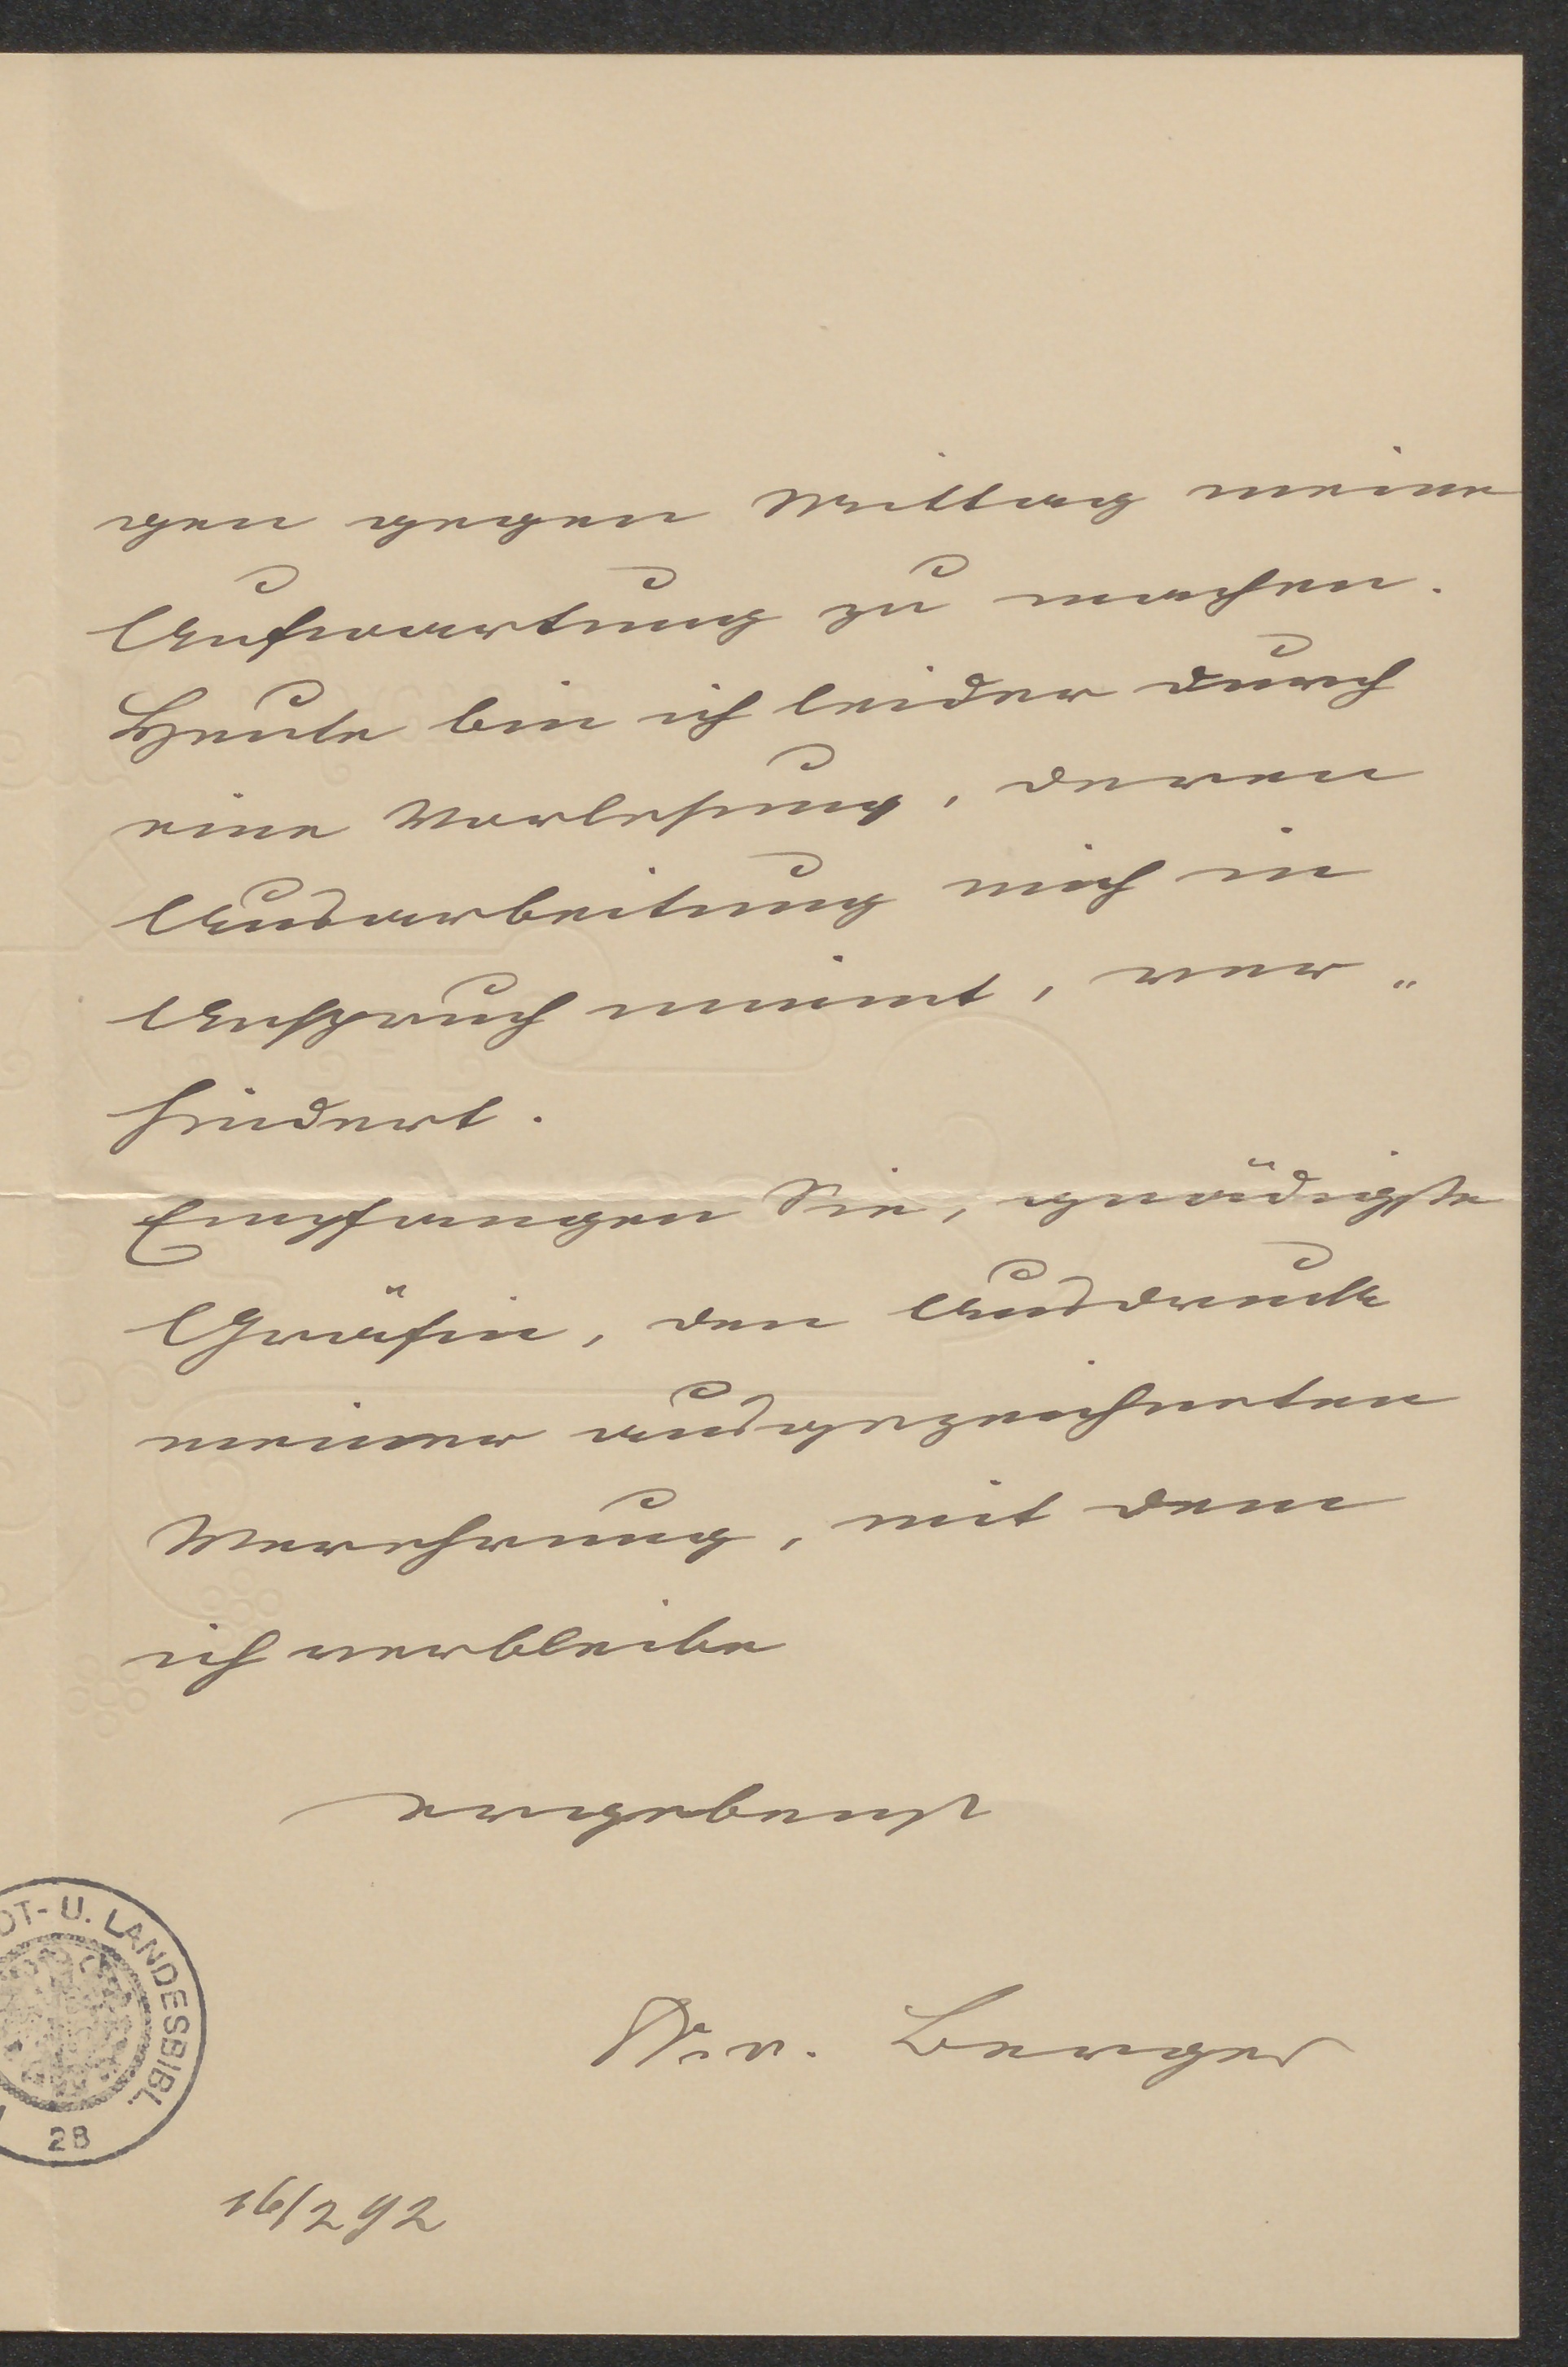 gen gegen Mittag meine
Aufwartung zu machen.
Heute bin ich leider durch
eine Vorlesung, deren
Ausarbeitung mich in
Anspruch nimmt, ver„
hindert.
Empfangen Sie, gnädigste
Gräfin, den Ausdruck
meiner ausgezeichneten
Verehrung, mit dem
ich verbleibe
ergebenst
v. Berger
DT- U. LANDESBIBL.
28
16/2 92